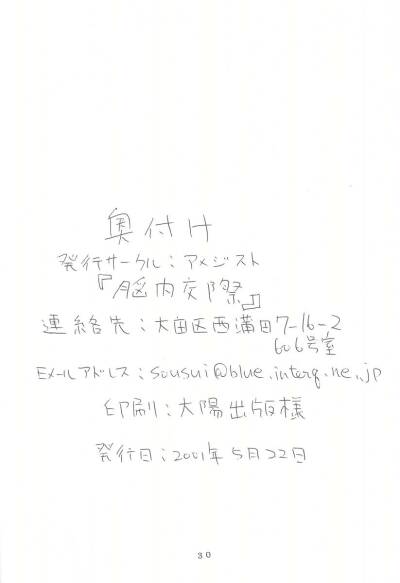 奥付け
発行サークル：アメジスト
『脳内交際』
連絡先：大田区西蒲田7-16-2
606号室
Eメールアドレス：sousui@blue.interq.ne.jp
印刷：太陽出版様
発行日：2001年5月22日
30